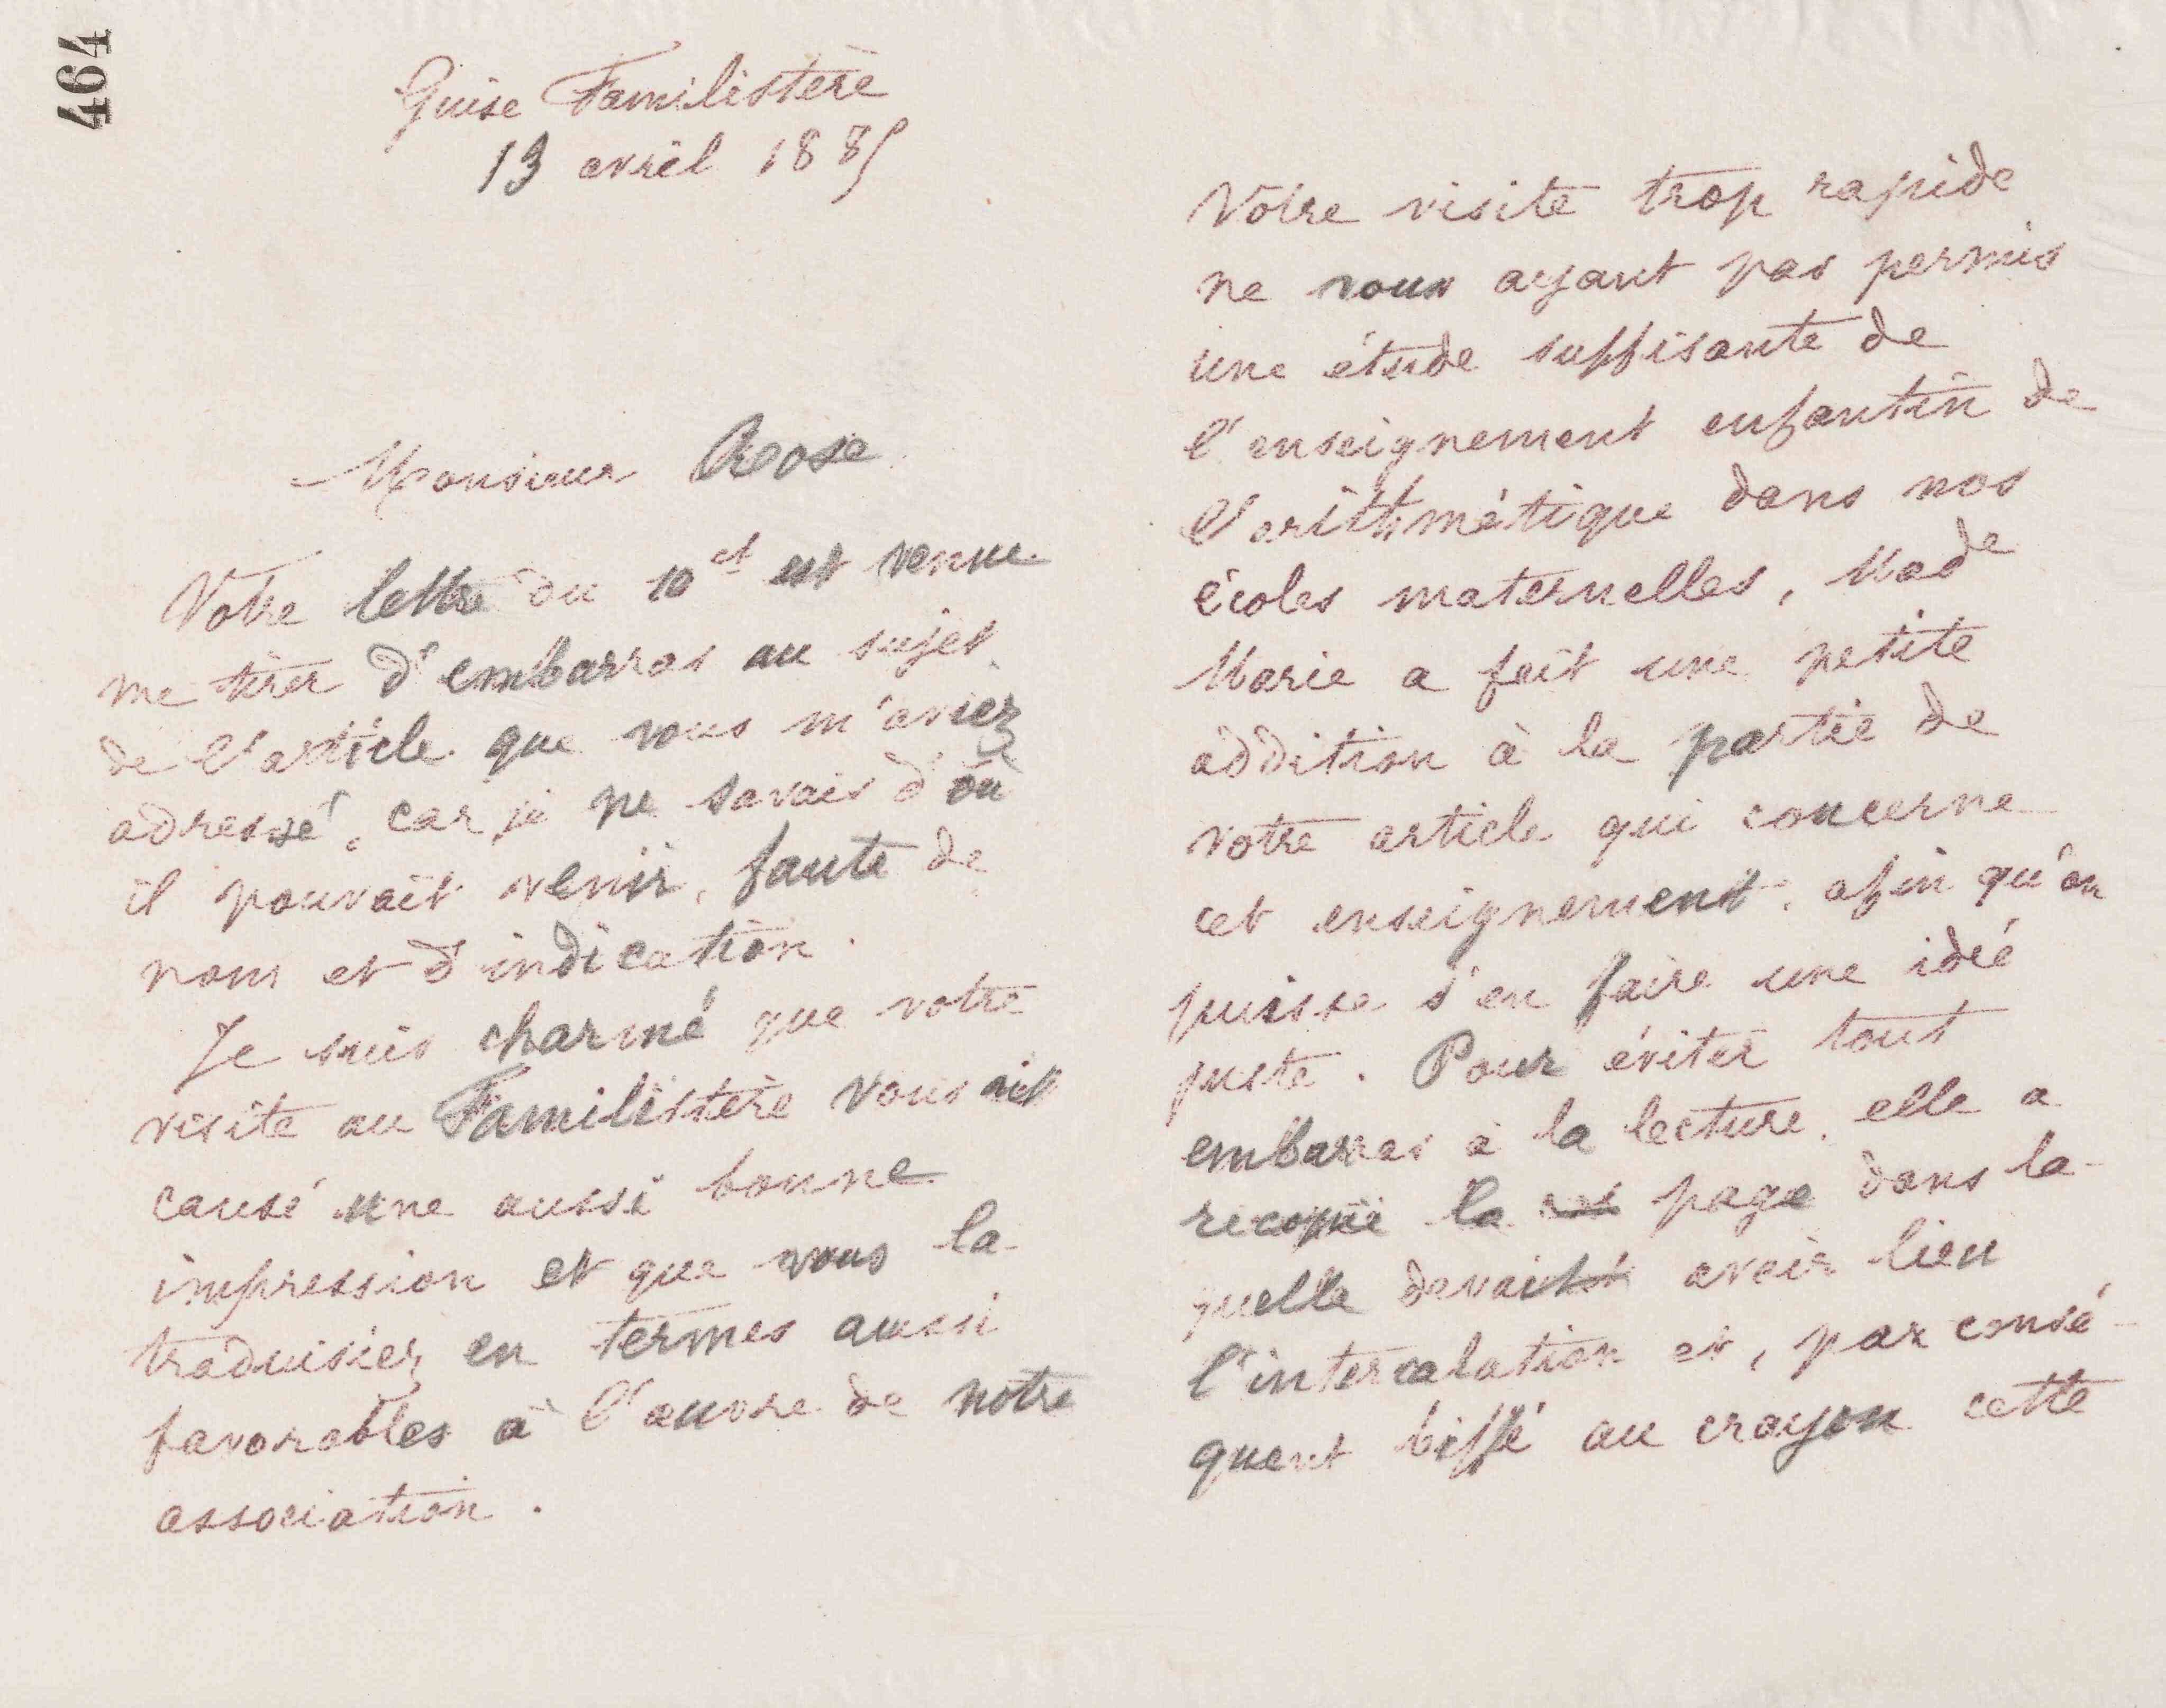 464
Guise Familistère
13 avril 1885
Monsieur Rose
Votre lettre du 10 ct est venue
me tirer d'embarras au sujet
de l'article que vous m'aviez
adressé, car je ne savais d'où
il pouvait venir, faute de
nom et d'indication.
Je suis charmé que votre
visite au Familistère vous ait
causé une aussi bonne
impression et que vous la
traduisiez en termes aussi
favorables à l'œuvre de notre
association.
Votre visite trop rapide
ne vous ayant pas permis
une étude suffisante de
l'enseignement enfantin de
l'arithmétique dans nos
écoles maternelles, Made
Marie a fait une petite
addition à la partie de
votre article qui concerne
cet enseignement, afin qu'on
puisse s'en faire une idée
juste. Pour éviter tout
embarras à la lecture, elle a
recopié la page dans la-
quelle devait avoir lieu
l'intercalation et, par consé-
quent biffé au crayon cette